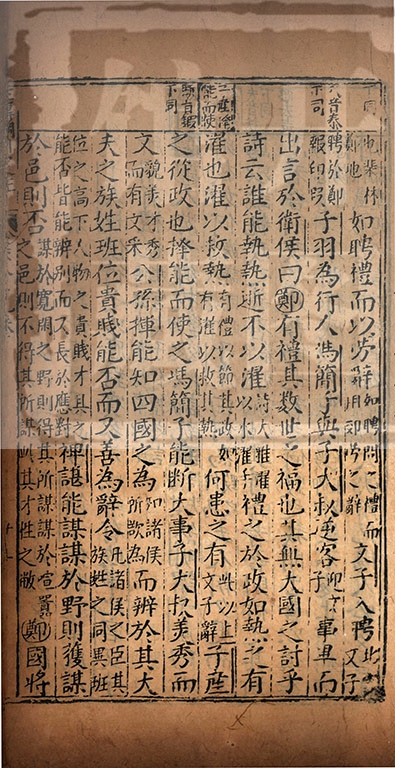 如聘禮而以勞辭 如聘問之禮而用郊勞之辭 文子入聘
子羽為行人馮簡子與子大叔逆客 事畢而
出言於衛侯曰鄭有禮其數世之福也其無大國之討乎
詩云誰能執熱逝不以濯 詩大雅濯以水濯手 禮之於政如執熱之有
濯也濯以救熱 有禮以節其政如有濯以救其熱 何患之有 此以上文子辭 子産
之從政也擇能而使之馮簡子能斷大事子大叔美秀而
文 貌美才秀而有文采 公孫揮能知四國之為 知諸侯所欲為 而辨於其大
夫之族姓班位貴賤能否而又善為辭令 凡諸侯之臣其族姓之同異班
位之高下人物之貴賤才具之能否皆能辨別而又長於應對 裨諶能謀謀於野則獲謀
於邑則否 謀於寬閒之野則得其所謀謀於宣囂之邑則不得其所謀此其才性之敝 鄭國將